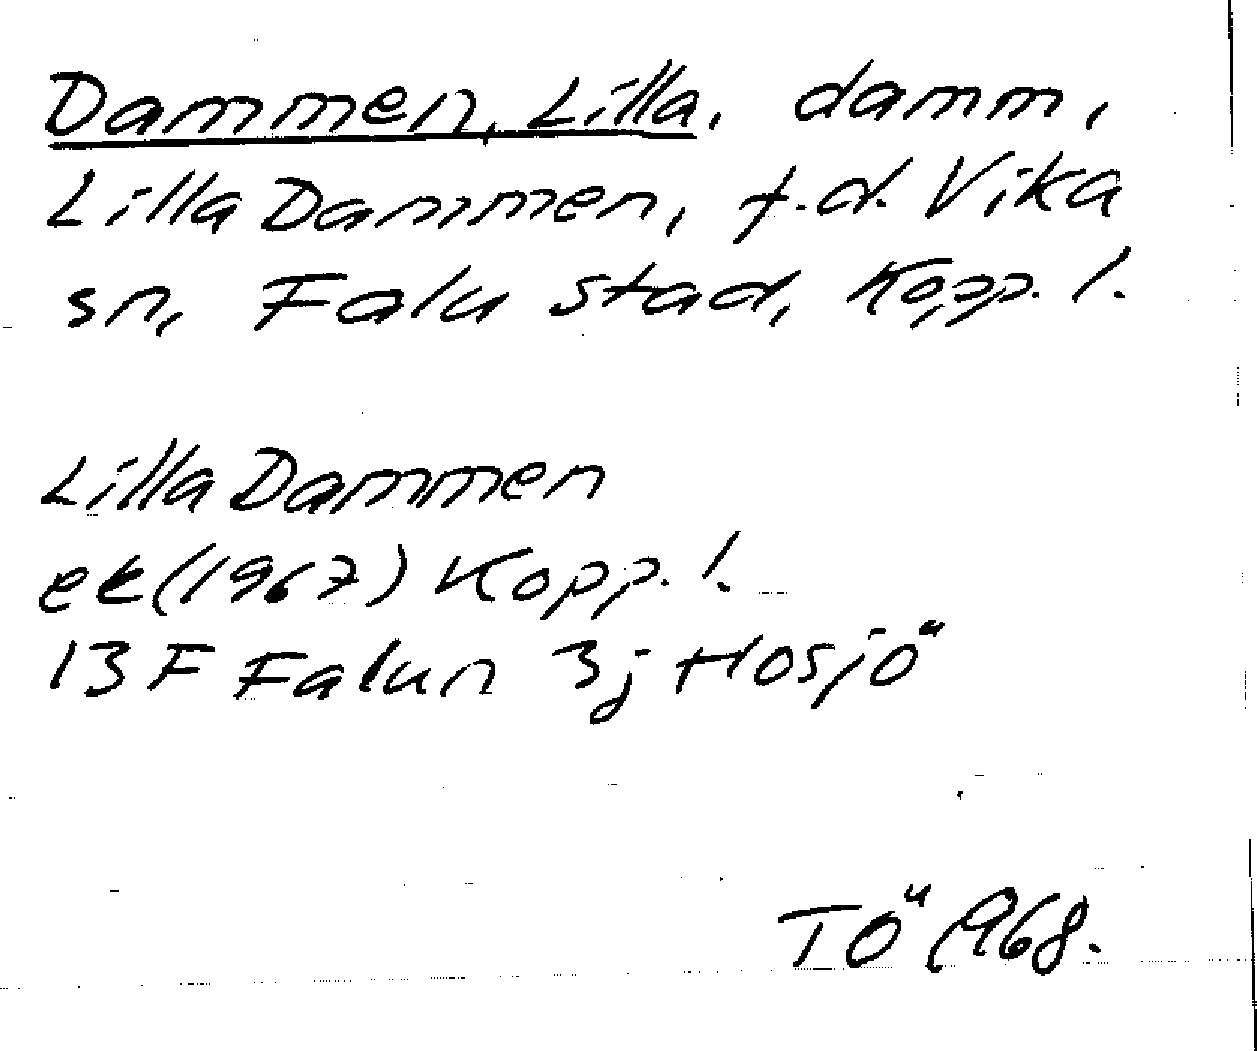 Dammen, Lilla, damm,
Lilla Dammen, f.d. Vika
sn, Falu stad, Kopp. l.
Lilla Dammen
ek (1967) Kopp. l.
13 F Falun 3j Hosjö
TÖ 1968.